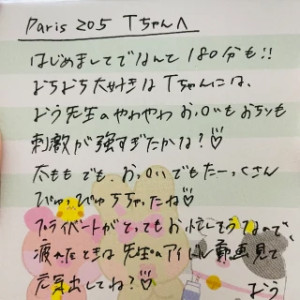 Paris 205 Tちゃんへ
はじめましてでなんと180分も!!
おちおち大好きな Tちゃんには、
よう先生のやわやわ お○いもおち○も
刺激が強すぎたかな？♡
太ももでも、お○いでもたーっくさん
ぴゅっぴゅうちゃったね♡
プライベートがとってもお忙しそうなので、
疲れたときは先生のアイ 動画見て
元気出してね？♡
よう